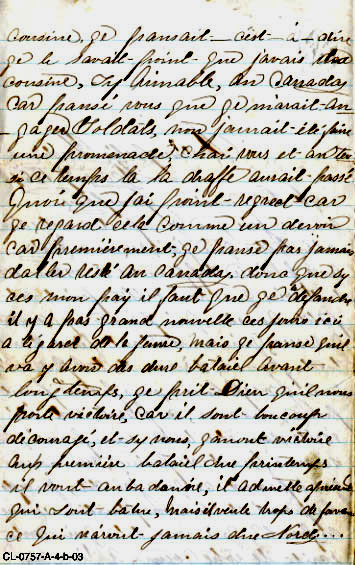 cousine, ge pansait - cést - à - dire
ge le savait - point - que javais une
cousine, Sy Aimable, au Canada,
car pansé vous que ge marait - an
gager Soldats, non jamait - été faire
une promenade, chai vous et - an ter
ce temps la la drafte aurait - passé
Quoi que jai point - regreet - car
ge regard cela comme un devoir
car premièrement, ge panse pas jamais
daler resté au Canada, donc que sy
ces mon païy il faut que ge défandre
il y a pas grand nouvelle ces jours ici
a légaret de la guerre, mais ge panse quil
va y avoir dès dure bataiel avant
long temps, ge prit Dien quil nous
porte victoire, car il sont boucoup
decouragé, et - sy nous, ganont victoire
aux première bataiel dus printemps
il vont anbadaner, il admette
qui soit - batue, mais il veule trops de faveur
ce qui naront - jamais dus Nord...
CL-0757-A-4-b-03